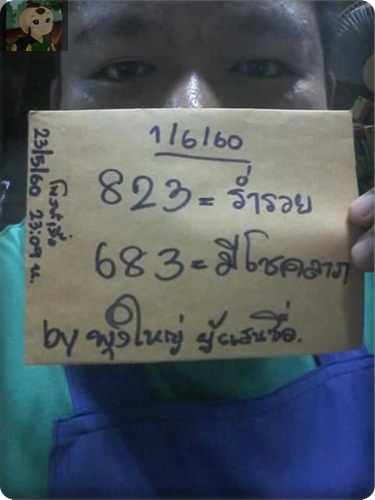 1/6/60
823 = ร่ำรวย
683 = มีโชคลาภ
by พุงใหญ่ ผู้แสนซื่อ.
โพสต์เมื่อ
23/5/60 23:09 น.